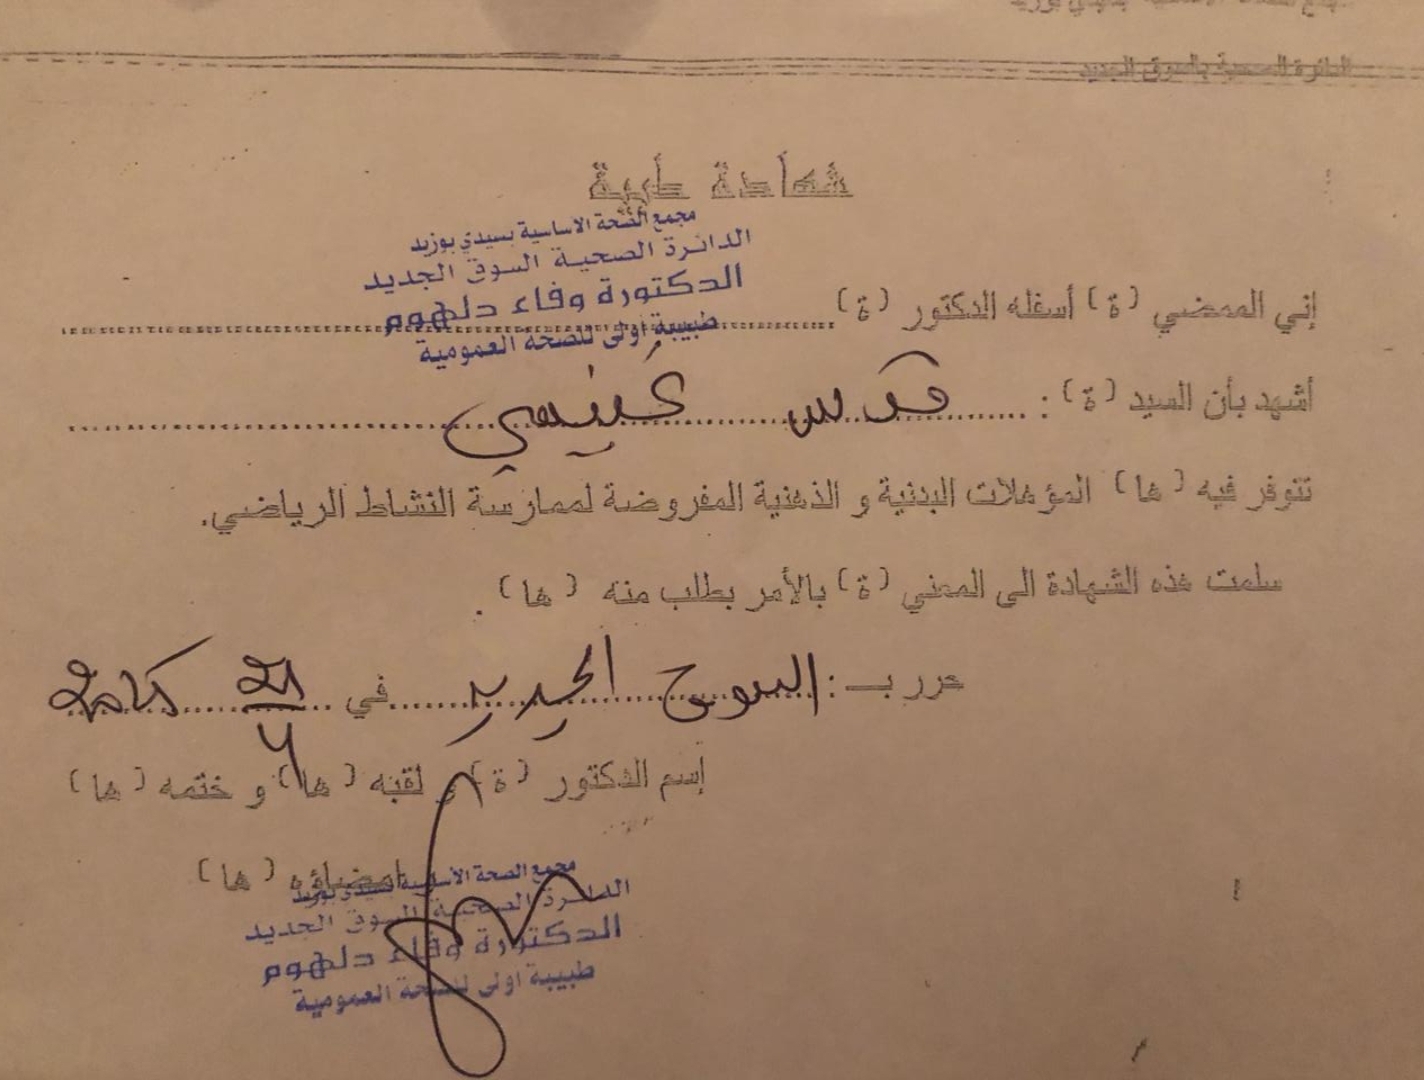 الدائرة الصحية بالسوق الجديد
شهادة طبية
مجمع الصحة الاساسية بسيدي بوزيد
الدائرة الصحية السوق الجديد
الدكتورة وفاء دلهوم
طبيبة اولى للصحة العمومية
إني الممضي (ة) أسفله الدكتور (ة)
أشهد بأن السيد (ة) : قدس
تتوفر فيه (ها) المؤهلات البدنية و الذهنية المفروضة لممارسة النشاط الرياضي.
سلمت هذه الشهادة الى المعني (ة) بالأمر بطلب منه (ها) .
حرر بـ : السوق الجديد في
إسم الدكتور (ة) و لقبه (ها) و ختمه (ها)
امضاؤه (ها)
مجمع الصحة الأساسية بسيدي بوزيد
الدائرة الصحية السوق الجديد
الدكتورة وفاء دلهوم
طبيبة اولى للصحة العمومية